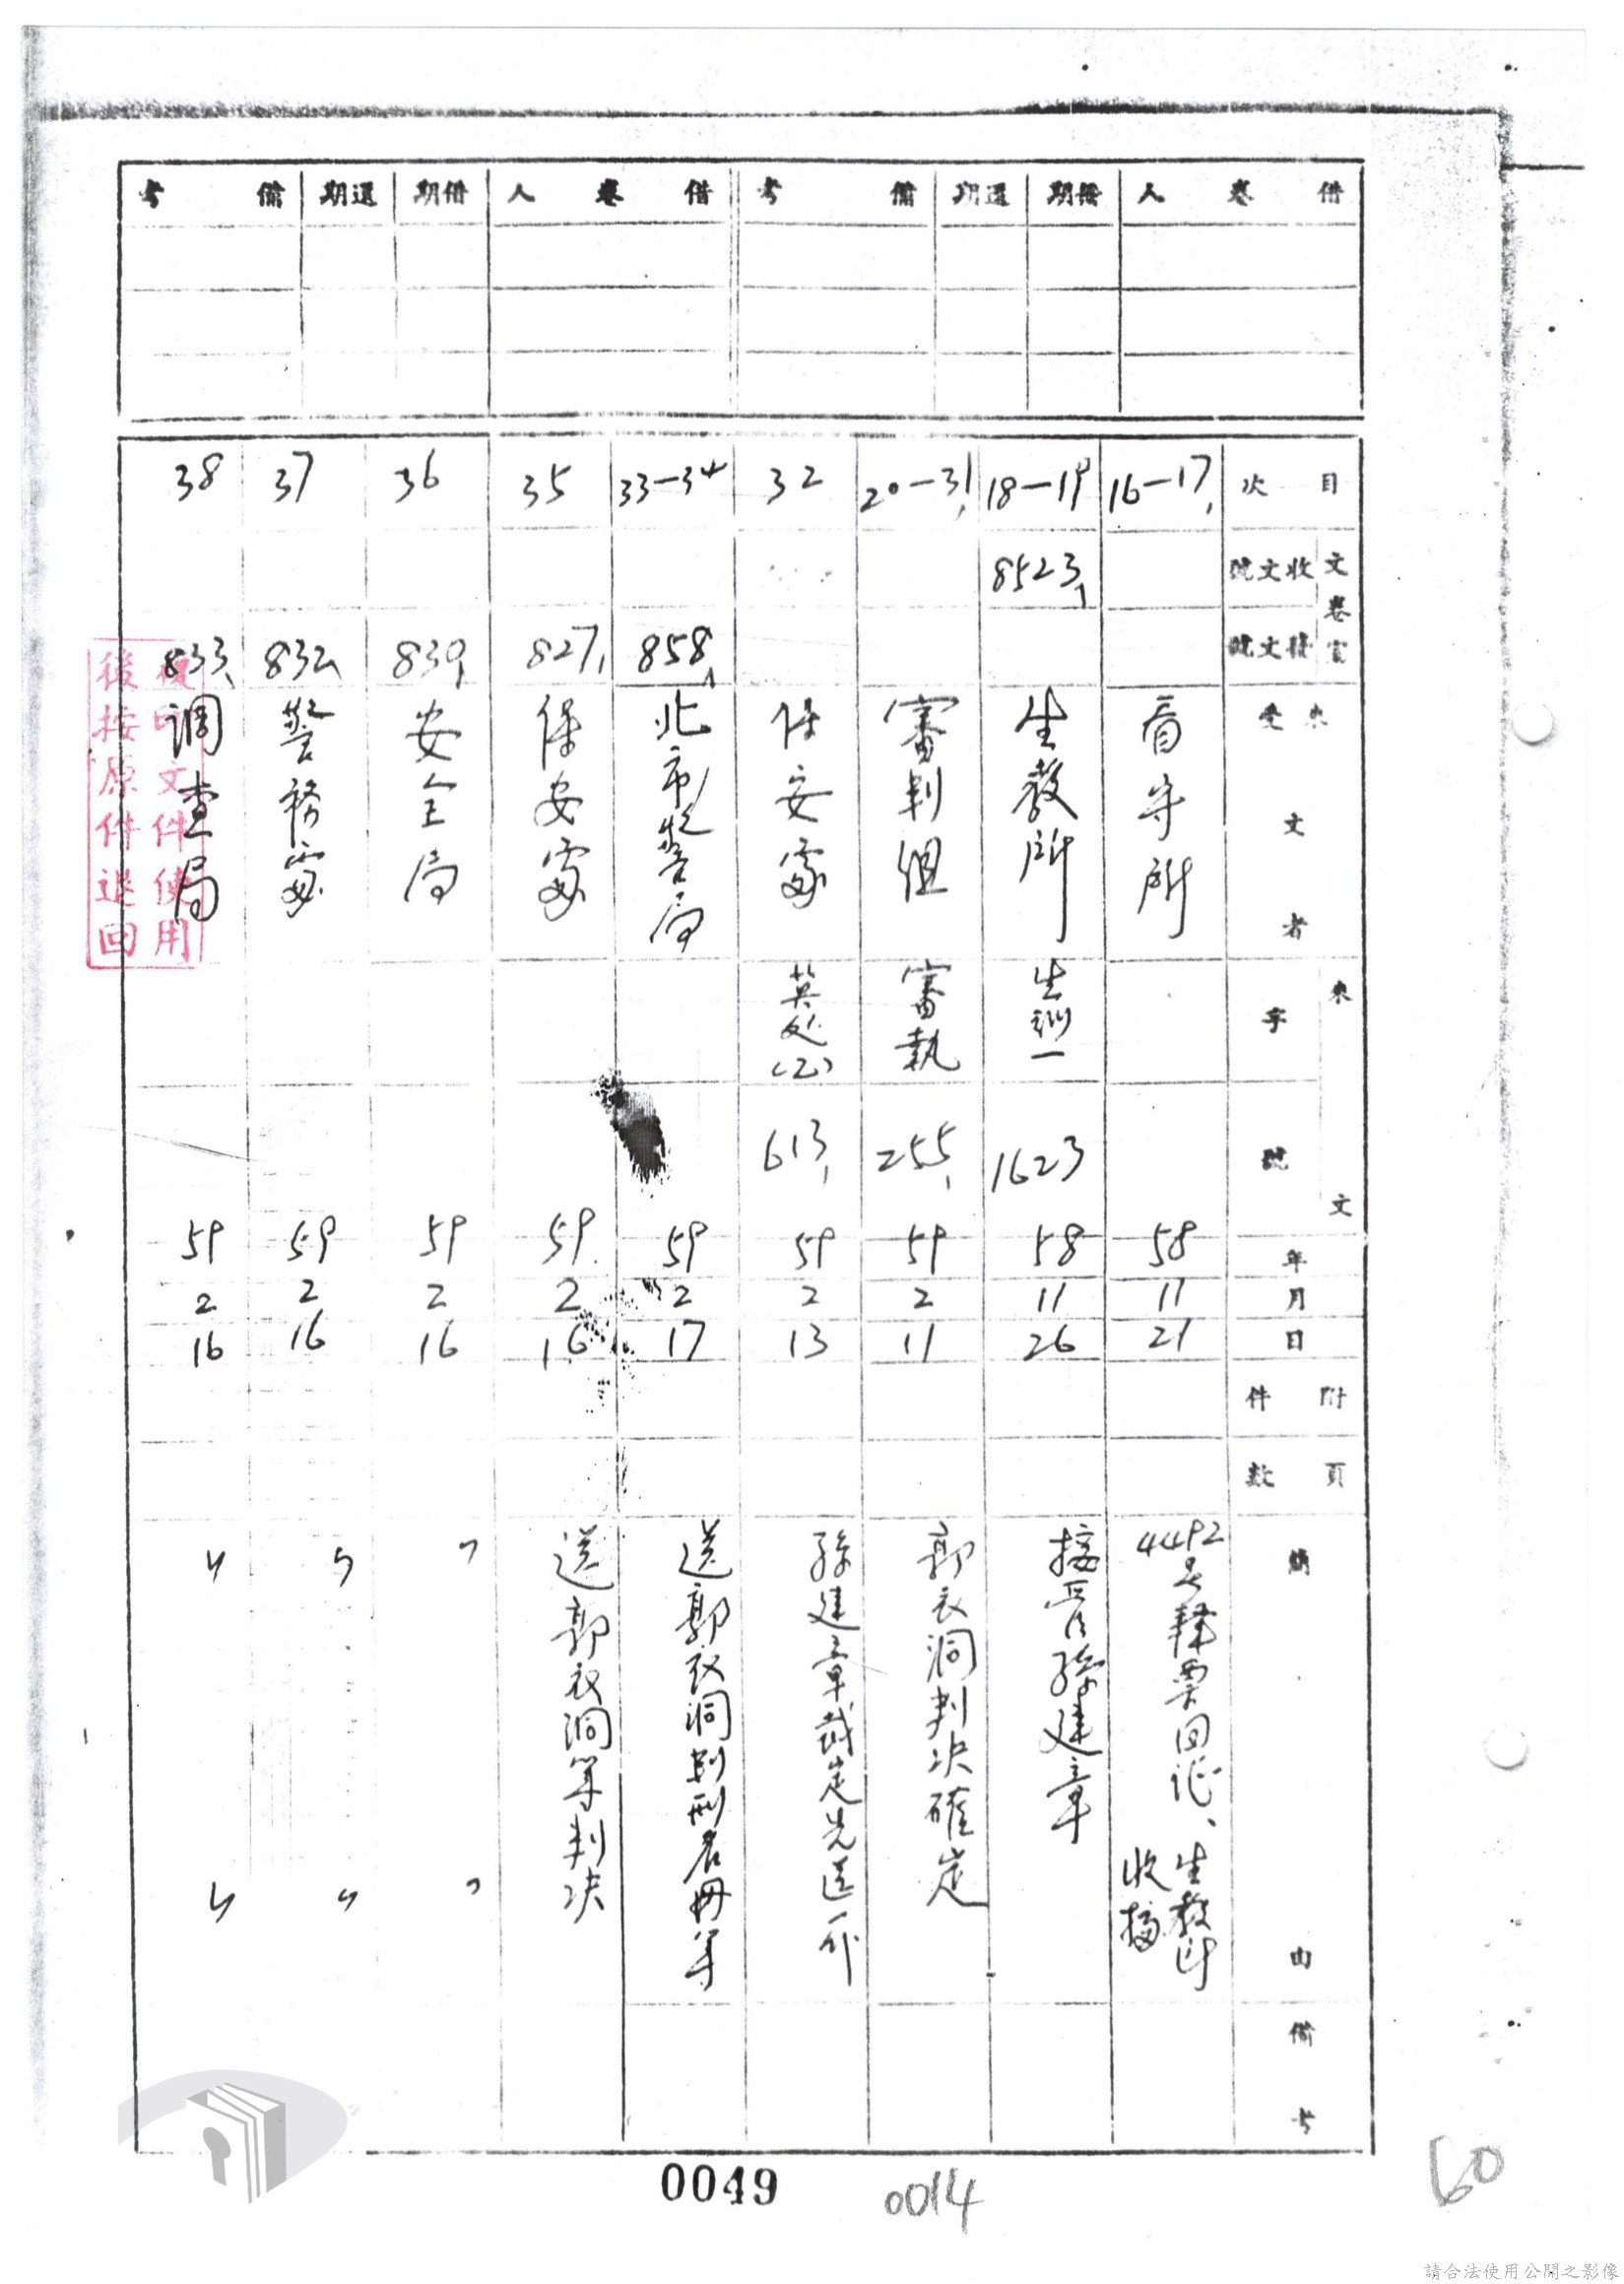 借卷人 借期 還期 備考 借卷人 借期 還期 備考
目次
文卷室
收文號
發文號
來受文者
來文
字
號
年
月
日
附件
頁數
簡由
備考
16—17
看守所
58
11
21
4492号釋票回證、生教所
收據
18—19
8523
生教所
生訓一
1623
58
11
26
接管孫建章
20—31
審判組
審執
255
59
2
11
郭衣洞判决確定
32
保安處
莫处(乙)
613
59
2
13
孫建章裁定先送一份
33—34
858
北市警局
59
2
17
送郭衣洞判刑名冊等
35
827
保安處
59
2
16
送郭衣洞等判决
36
839
安全局
59
2
16
〃 〃
37
832
警務處
59
2
16
〃 〃
38
833
調查局
59
2
16
〃 〃
複印文件使用
後按原件退回
0049
0014
60
請合法使用公開之影像